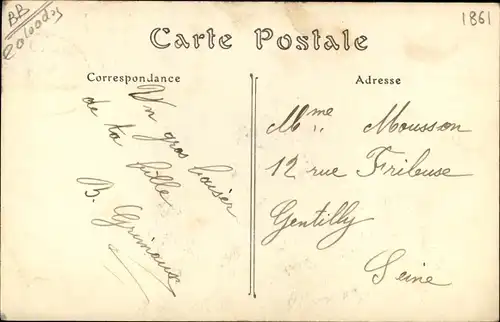 BB
1861
Carte Postale
Correspondance
Un gros baiser
de ta fille
B.
Adresse
Mme Mousson
12 rue Frileuse
Gentilly
Seine